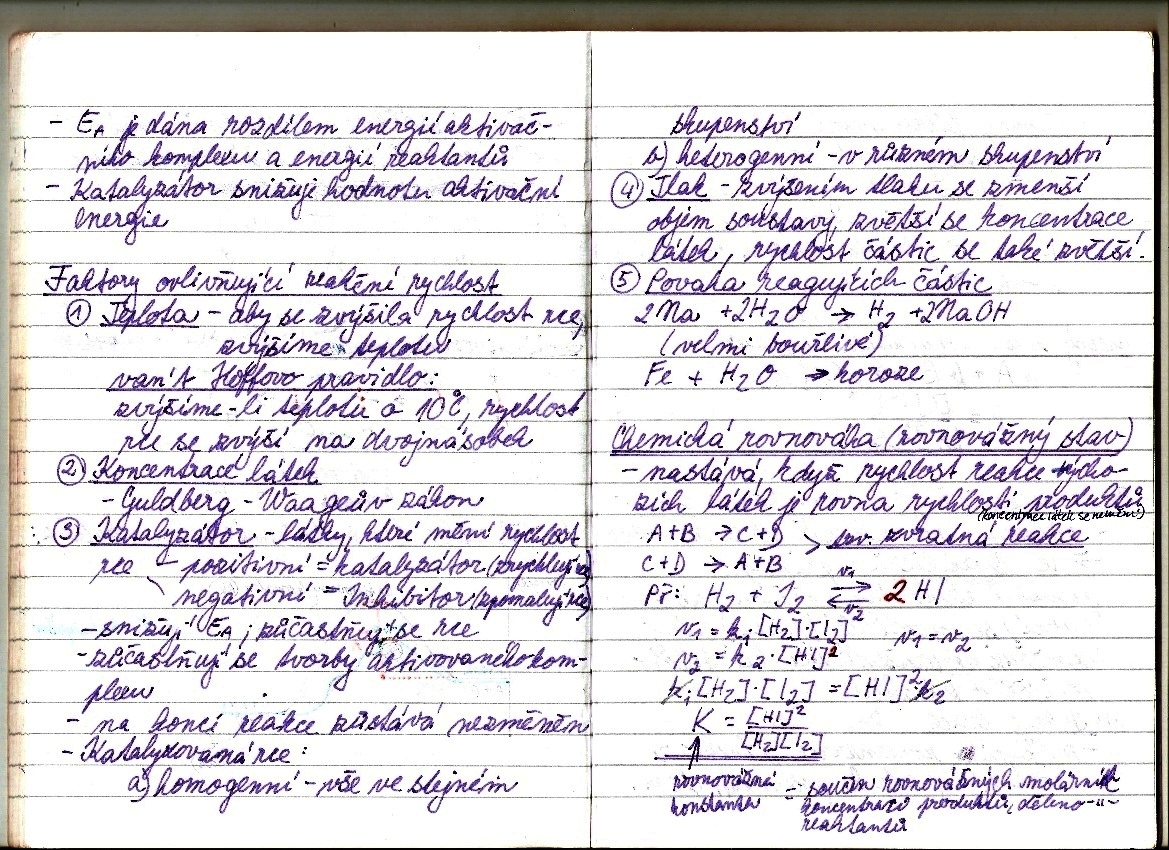 - EA je dána rozdílem energií aktivač-
ního komplexu a energií reaktantů
- Katalyzátor snižuje hodnotu aktivační
energie
Faktory ovlivňující reakční rychlost
① Teplota - aby se zvýšila rychlost rce,
zvýšíme teplotu
van't Hoffovo pravidlo:
zvýšíme-li teplotu o 10°C, rychlost
rce se zvýší na dvojnásobek
② Koncentrace látek
- Guldberg - Waageův zákon
③ Katalyzátor - látky, které mění rychlost
rce - pozitivní = katalyzátor (zrychlují rci)
negativní = Inhibitor (zpomalují rce)
- snižují EA, zúčastňují se rce
- zúčastňují se tvorby aktivovaného kom-
plexu
- na konci reakce zůstává nezměněn
- Katalyzovaná rce:
a) homogenní - vše ve stejném
skupenství
b) heterogenní - v různém skupenství
④ Tlak - zvýšením tlaku se zmenší
objem soustavy, zvětší se koncentrace
látek, rychlost částic se také zvětší.
⑤ Povaha reagujících částic
2Na + 2H2O → H2 + 2NaOH
(velmi bouřlivé)
Fe + H2O → koroze
Chemická rovnováha (rovnovážný stav)
- nastává, když rychlost reakce výcho-
zích látek je rovna rychlosti produktů
(koncentrace látek se nemění)
A+B → C+D > tzv. zvratná reakce
C+D → A+B
Př: H2 + I2 ⇌ 2 HI
v1
v2
v1 = k1 [H2]·[I2] v1 = v2
v2 = k2·[HI]2
k1 [H2]·[I2] = [HI]2 k2
K = [HI]2 / [H2][I2]
rovnovážná
konstanta
- součin rovnovážných molárních
koncentrací produktů, děleno -"-
reaktantů